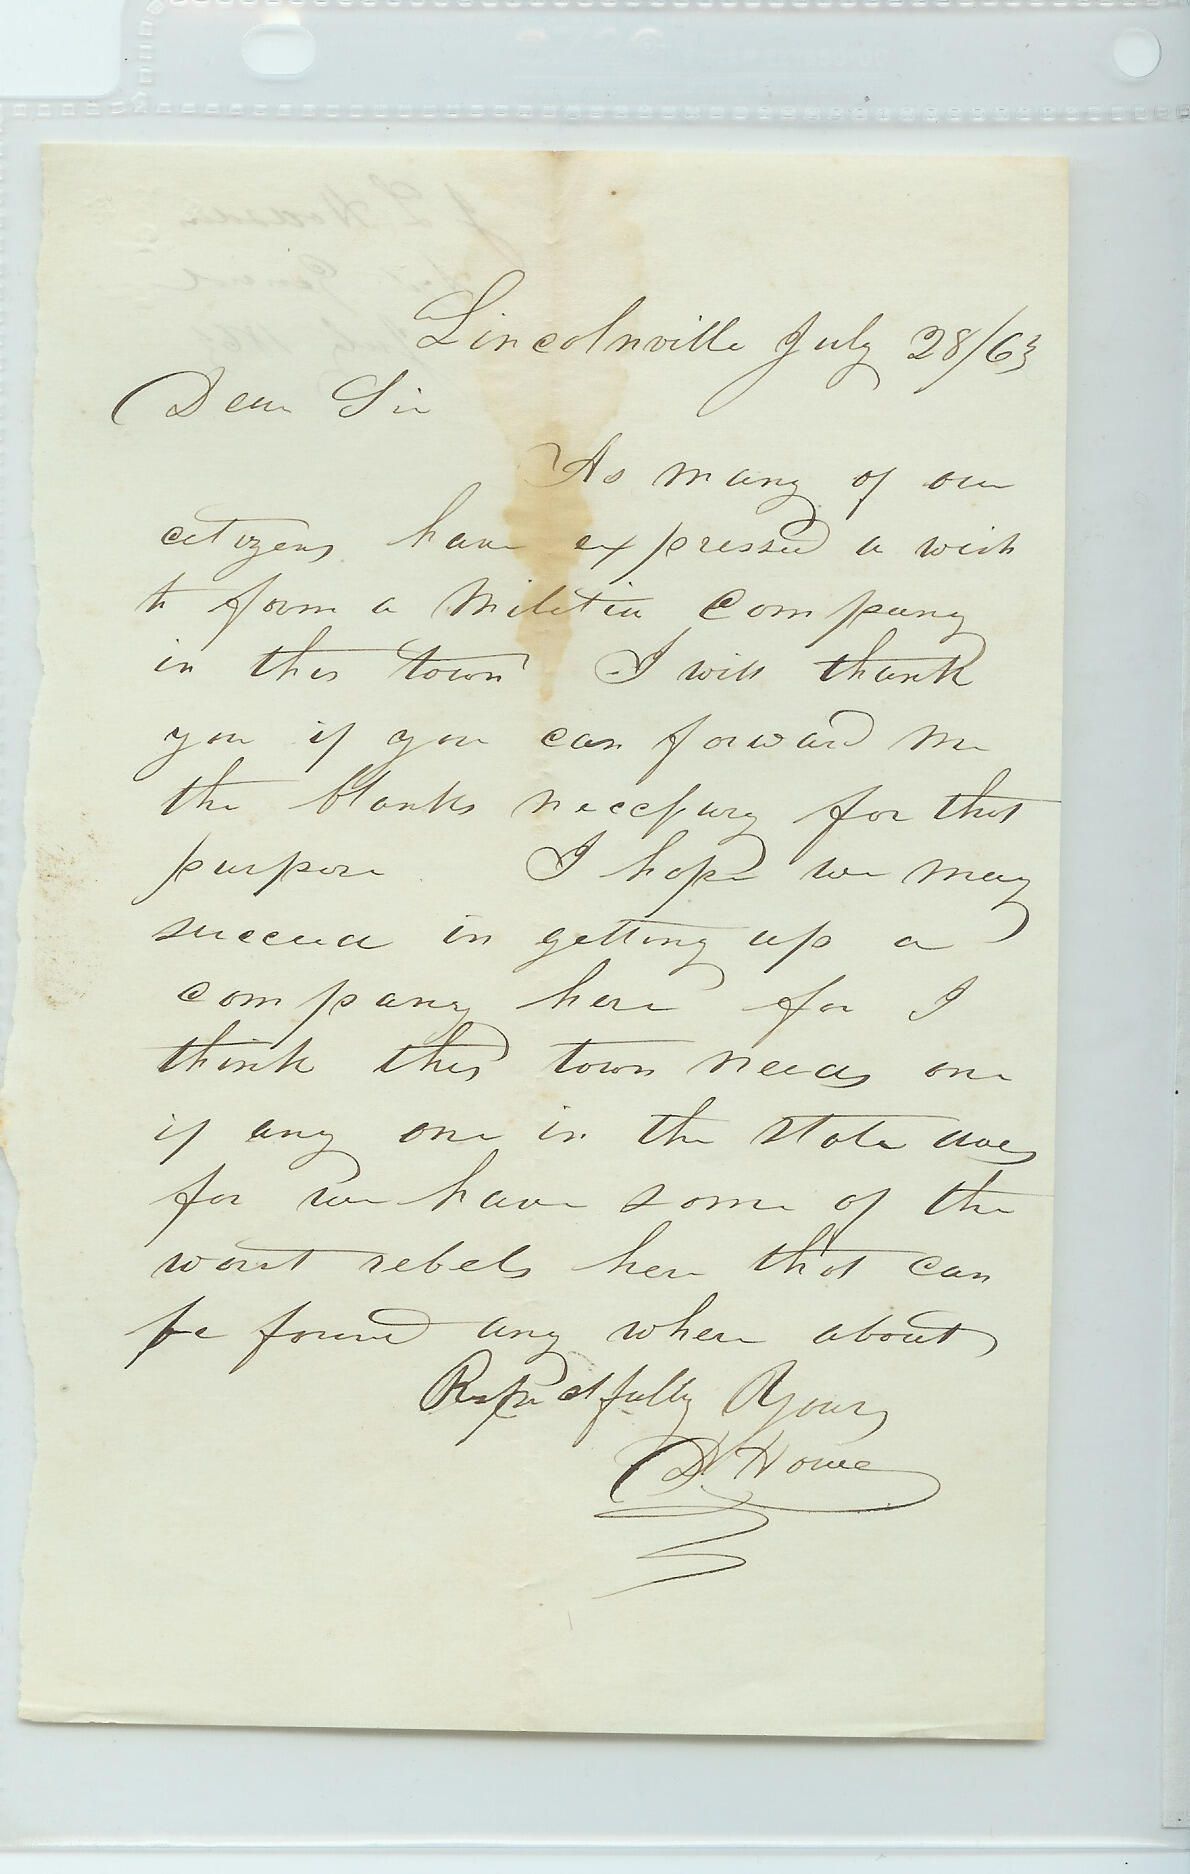 Lincolnville July 28/63
Dear Sir
As many of our
citizens have expressed a wish
to form a Militia Company
in this town I will thank
you if you can forward me
the blanks necessary for that
purpose I hope we may
succeed in getting up a
company here for I
think this town needs one
if any one in the state does
for we have some of the
worst rebels here that can
be found any where about
Respectfully Yours
D Howe